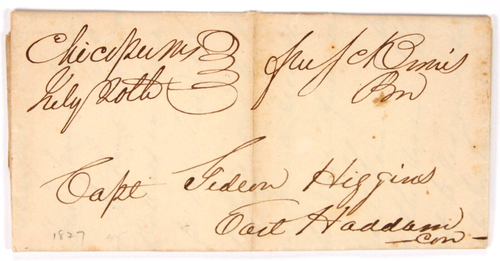 Chicopee Ms
July 20th
Free
Pm
Capt Gideon Higgins
East Haddam
Con
1827